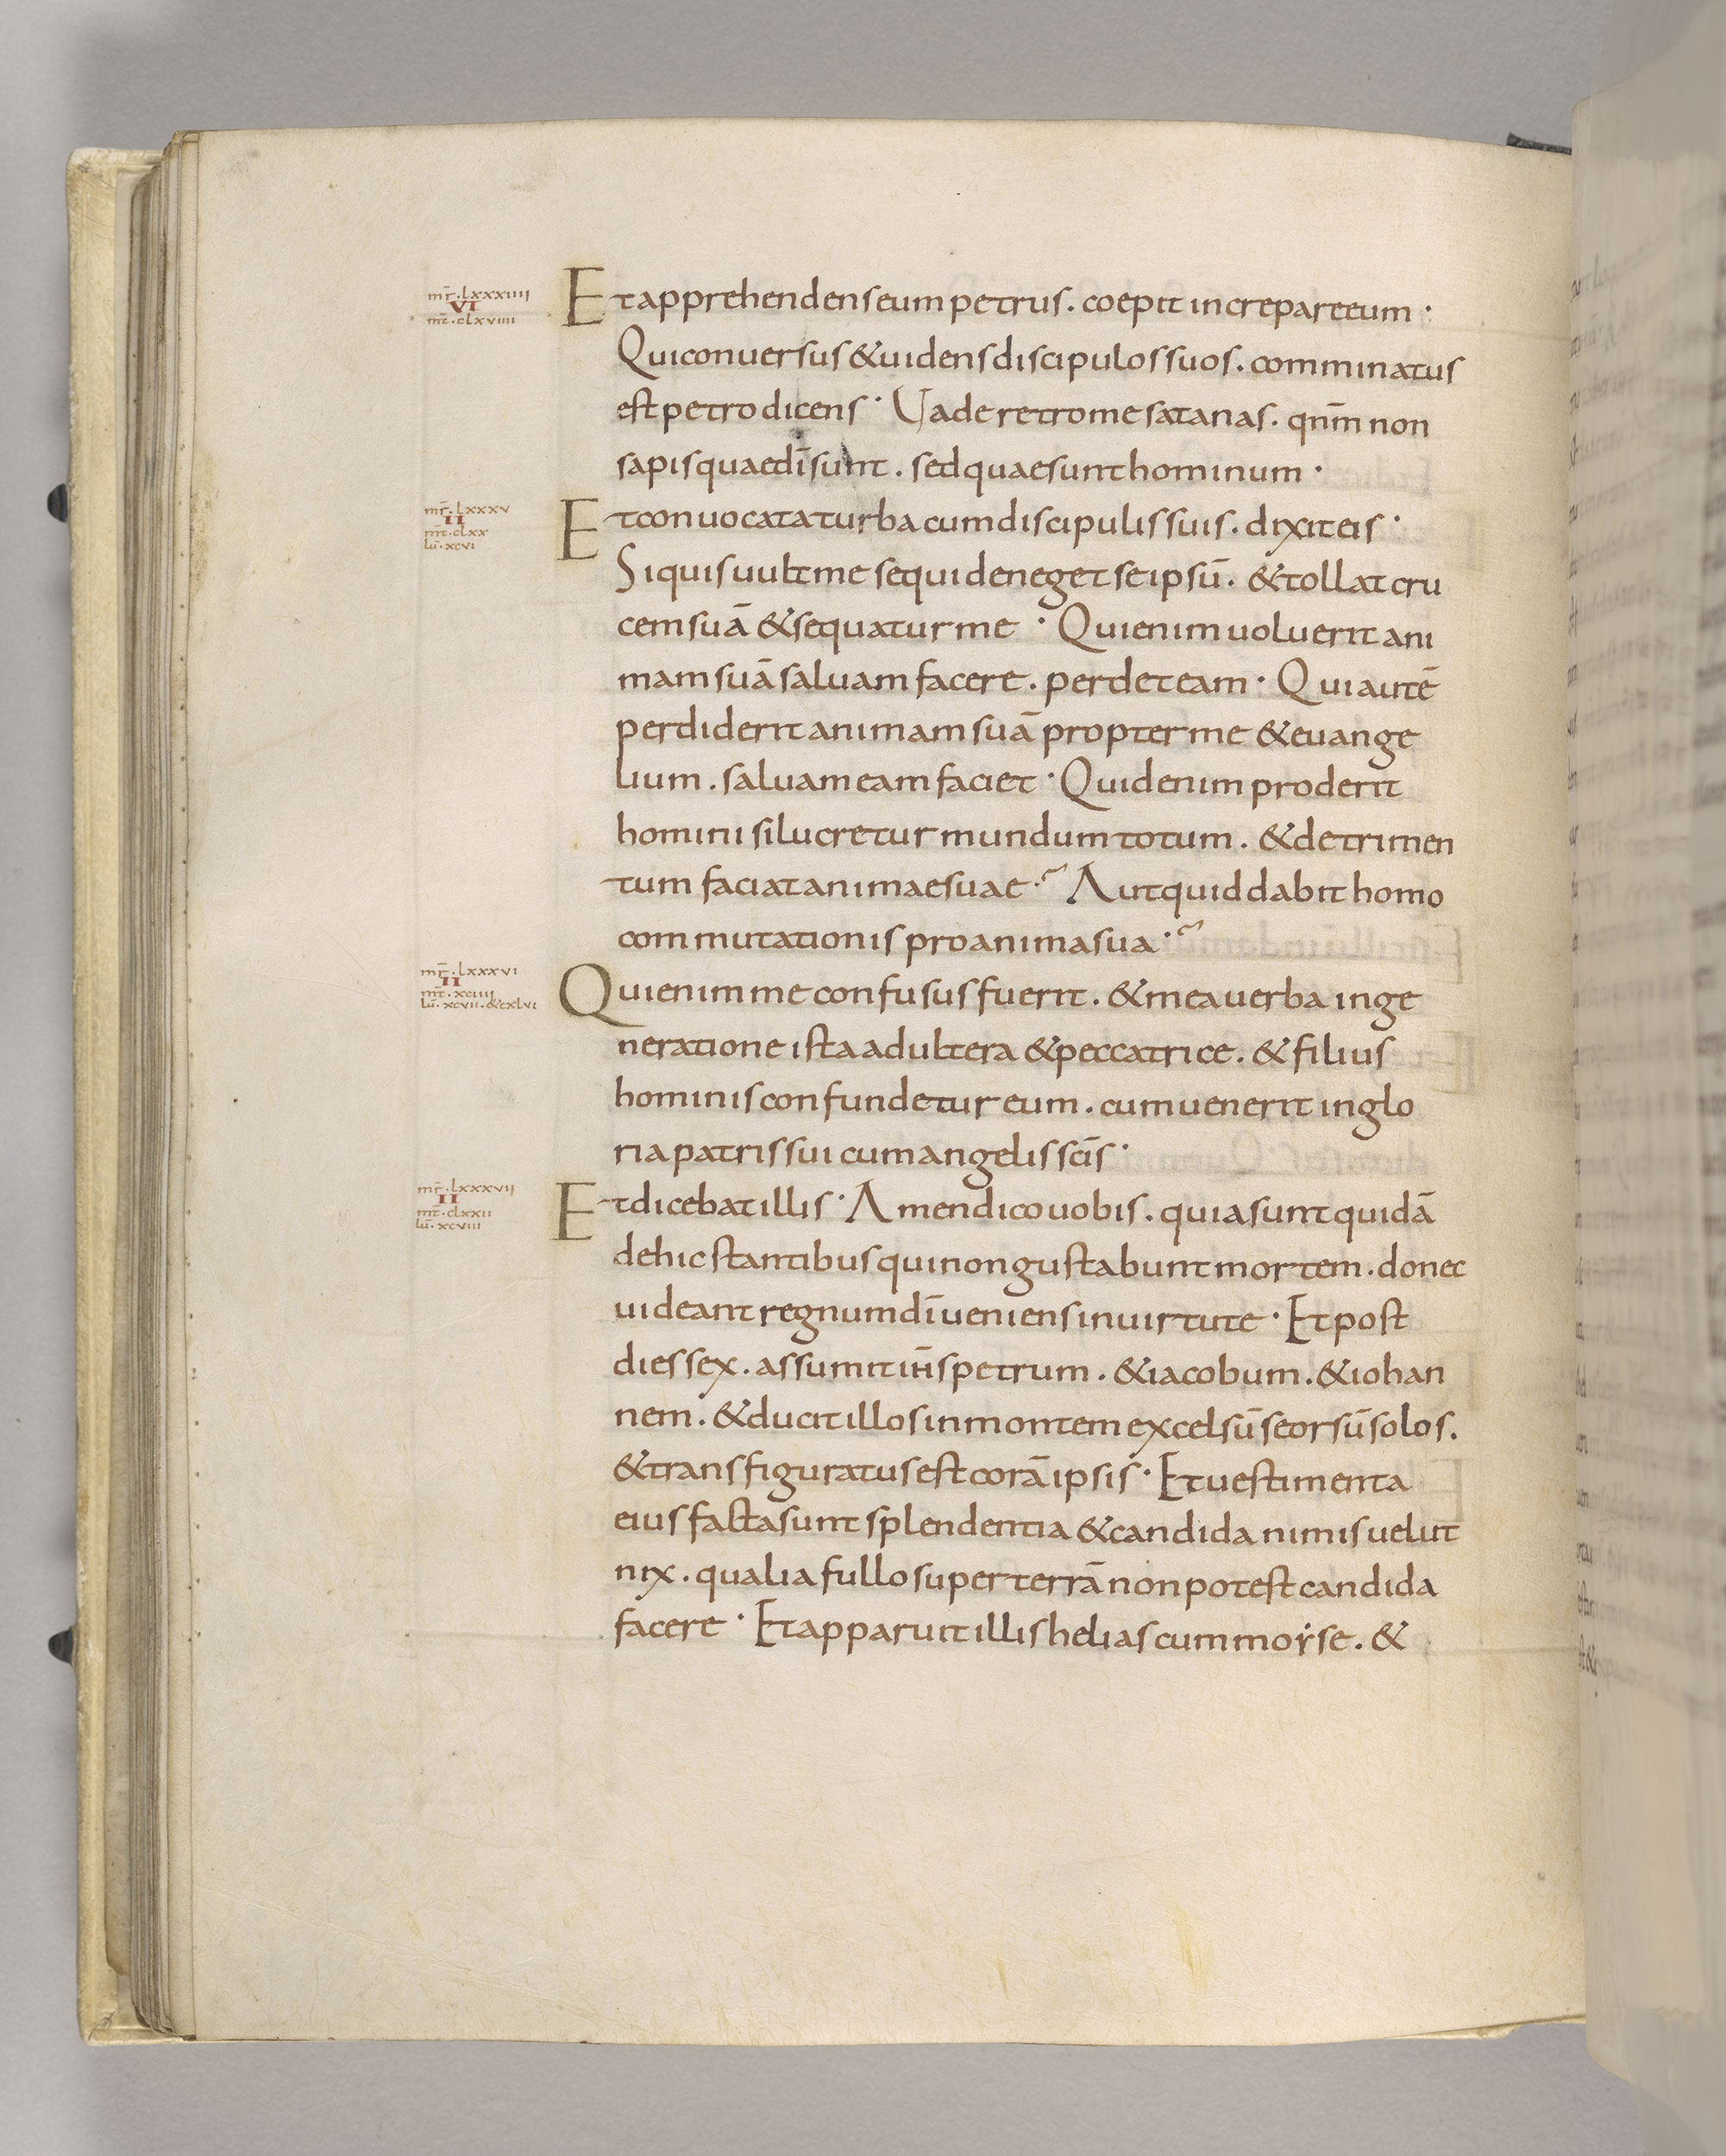 mr̄·lxxxiiii
VI
mt̄·clxviiii
Et apprehendens eum petrus. coepit increpare eum·
Qui conuersus & uidens discipulos suos. comminatus
est petro dicens· Uade retro me satanas. qnm̄ non
sapis quae dī sunt. sed quae sunt hominum·
mr̄·lxxxv
II
mt̄·clxx
lū·xcvi
Et conuocata turba cum discipulis suis. dixit eis·
Si quis uult me sequi deneget se ipsū. & tollat cru
cem suā & sequatur me· Qui enim uoluerit ani
mam suā saluam facere. perdet eam· Qui autē
perdiderit animam suā propter me & euange
lium. saluam eam faciet· Quid enim proderit
homini si lucretur mundum totum. & detrimen
tum faciat animae suae·~ Aut quid dabit homo
commutationis pro anima sua·~
mr̄·lxxxvi
II
mt̄·xciiii
lū·xcvii·&cxlvi
Qui enim me confusus fuerit. & mea uerba in ge
neratione ista adultera & peccatrice. & filius
hominis confundetur eum. cum uenerit in glo
ria patris sui cum angelis scīs·
mr̄·lxxxvii
II
mt̄·clxxii
lū·xcviii
Et dicebat illis· Amen dico uobis. quia sunt quidā
de hic stantibus qui non gustabunt mortem. donec
uideant regnum dī ueniens in uirtute· Et post
dies sex. assumit ih̄s petrum. & iacobum. & iohan
nem. & ducit illos in montem excelsū seorsū solos.
& transfiguratus est corā ipsis· Et uestimenta
eius facta sunt splendentia & candida nimis uelut
nix. qualia fullo super terrā non potest candida
facere· Et apparuit illis helias cum moẏse. &